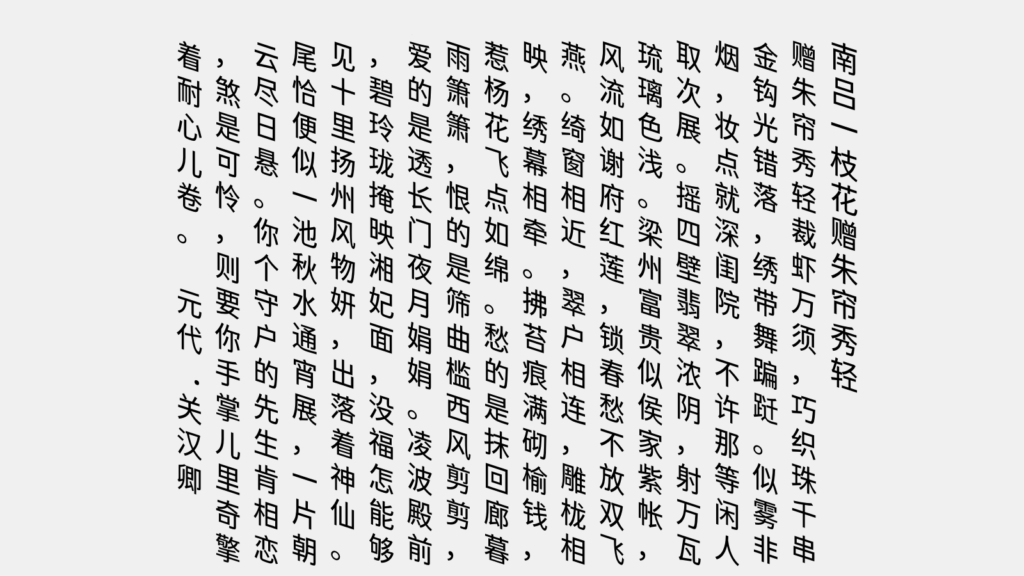 南吕一枝花赠朱帘秀轻
赠朱帘秀轻裁虾万须，巧织珠千串
金钩光错落，绣带舞蹁跹。似雾非
烟，妆点就深闺院，不许那等闲人
取次展。摇四壁翡翠浓阴，射万瓦
琉璃色浅。梁州富贵似侯家紫帐，
风流如谢府红莲，锁春愁不放双飞
燕。绮窗相近，翠户相连，雕栊相
映，绣幕相牵。拂苔痕满砌榆钱，
惹杨花飞点如绵。愁的是抹回廊暮
雨箫箫，恨的是筛曲槛西风剪剪，
爱的是透长门夜月娟娟。凌波殿前
，碧玲珑掩映湘妃面，没福怎能够
见十里扬州风物妍，出落着神仙。
尾恰便似一池秋水通宵展，一片朝
云尽日悬。你个守户的先生肯相恋
，煞是可怜，则要你手掌儿里奇擎
着耐心儿卷。 元代.关汉卿